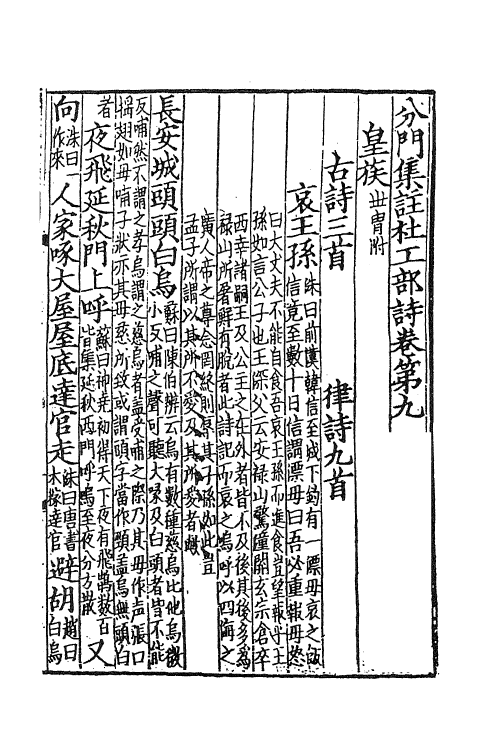 分門集註杜工部詩卷第九
皇族 世胄附
古詩三首 律詩九首
哀王孫 洙曰前漢韓信至城下釣有一漂母哀之飯
信竟至數十日信謂漂母曰吾必重報母怒
曰大丈夫不能自食吾哀王孫而進食豈望報乎王
孫如言公子也王深父云安祿山驚潼關玄宗倉卒
西幸諸嗣王及公主之在外者皆不及後其後多為
祿山所屠鮮有脫者此詩記而哀之嗚呼以四海之
廣人帝之尊念罔終則辱其子孫如此豈
孟子所謂以其所不愛及其所愛者歟
長安城頭頭白烏 蘇曰陳伯辨云烏有數種慈烏比他烏微
小反哺之聲可聽大喙及白頭者皆不能
反哺然不謂之孝烏謂之慈烏者蓋受哺之際乃其母作声張口
搨翅如母哺子狀亦其母慈所致或謂頭字當作頸蓋烏無頭白
者 夜飛延秋門上呼 蘇曰神堯初得天下夜有飛鵲數百
皆集延秋西門呼鳴至夜分方散 又
向 洙曰一
作來 人家啄大屋屋底達官走 洙曰唐書
木稼達官 避胡 趙曰
白烏